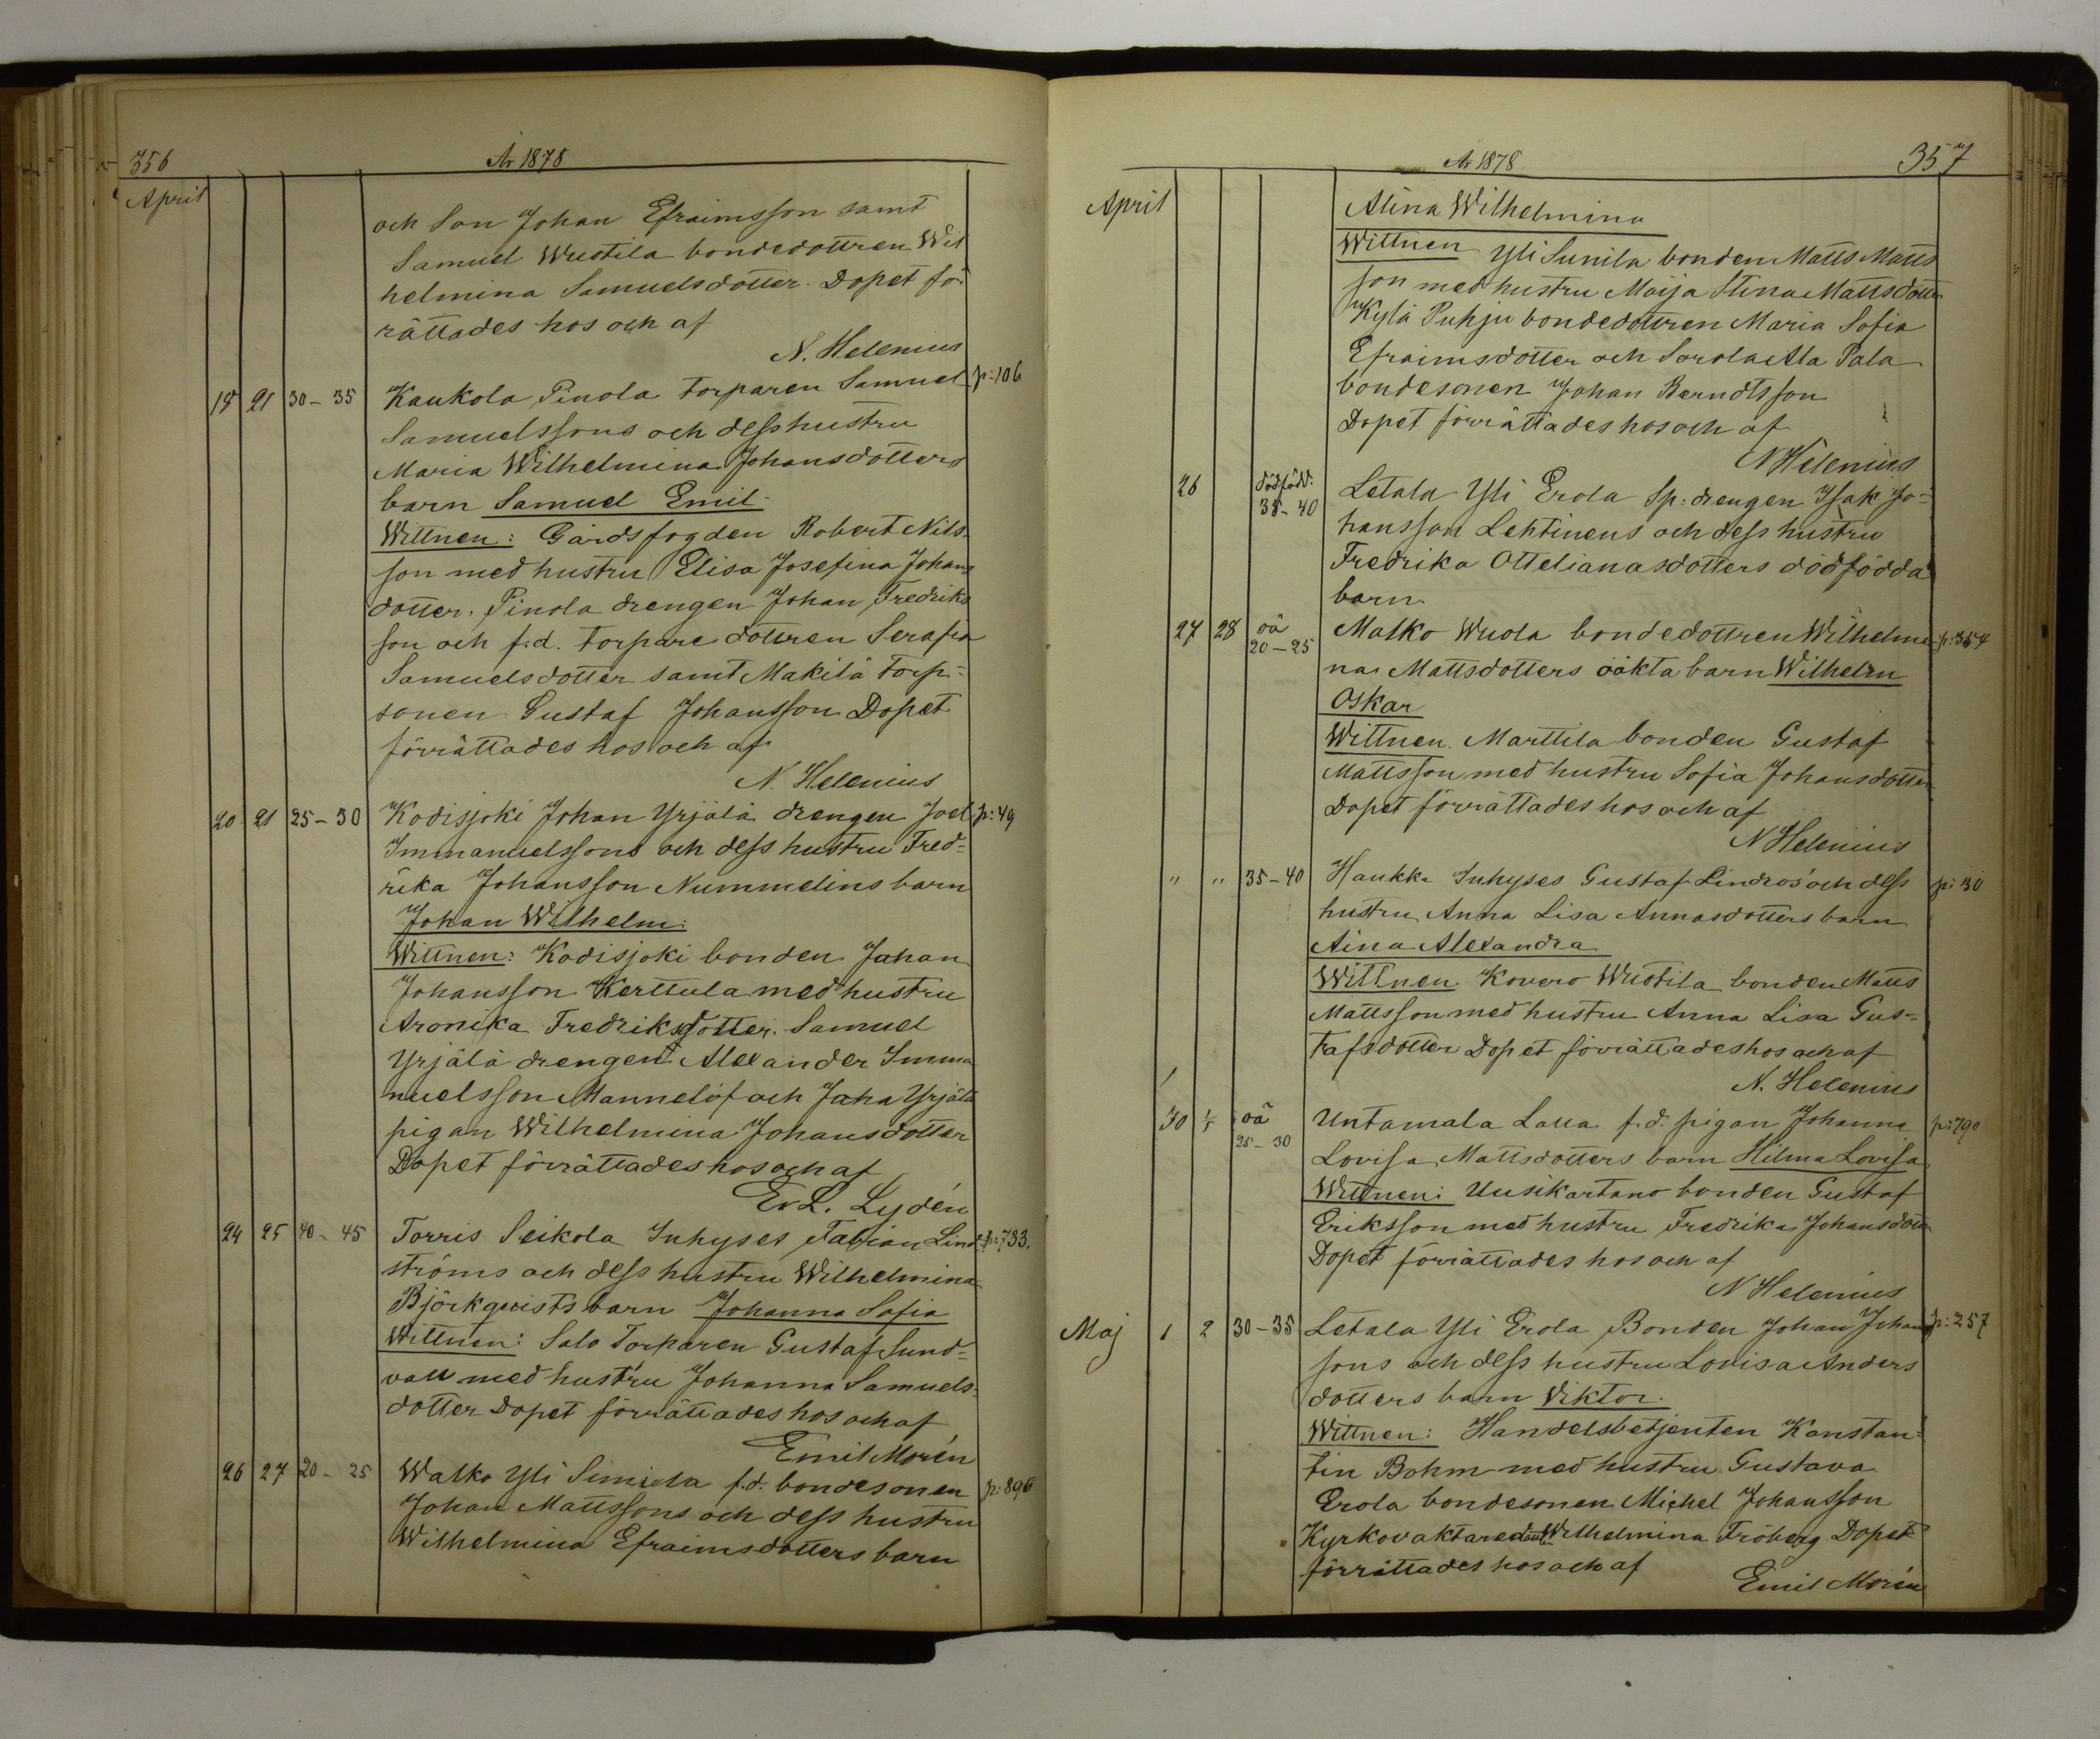 356
År 1878
April
och Son Johan Efraimsson samt
Samuel Wustila bondedottren Wil
helmina Samuelsdotter. Dopet för
rättades hos och af
N. Helenius
18 21 30-35 Kaukola Pinola torparen Samuel p: 106
Samuelssons och dess hustru
Maria Wilhelmina Johansdotters
barn Samuel Emil.
Wittnen: Gårdsfogden Robert Nils-
son med hustru Elisa Josefina Johans
dotter. Pinola drengen Johan Fredriks
son och f.d. torpare dottren Serafia
Samuelsdotter samt Makilä torp-
sonen Gustaf Johansson Dopet
förrättades hos och af
N. Helenius
20 21 25-30 Kodisjoki Johan Yrjälä drengen Joel p: 49
Immanuelssons och dess hustru Fred-
rika Johansson Nummelins barn
Johan Wilhelm.
Wittnen: Kodisjoki bonden Johan
Johansson Kerttula med hustru
Aronika Fredriksdotter. Samuel
Yrjälä drengen Alexander Imma
nuelsson Mannelöf och Juha Yrjälä
pigan Wilhelmina Johansdotter
Dopet förrättades hos och af
L. Lydén
24 25 40-45 Torris Seikola Inhyses Fabian Lind p: 733.
ströms och dess hustru Wilhelmina
Björkqwists barn Johanna Sofia
Wittnen: Salo Torparen Gustaf Sund-
vall med hustru Johanna Samuels-
dotter Dopet förrättades hos och af
Emil Morén
26 27 20-25 Walko Yli Simila f.d. bondesonen p: 896
Johan Mattssons och dess hustru
Wilhelmina Efraimsdotters barn
År 1878
357
April
Alina Wilhelmina
Wittnen Yli Sunila bonden Matts Matts
son med hustru Maija Stina Mattsdotter
Kylä Puhju bondedottren Maria Sofia
Efraimsdotter och Sorola Ala Pala
bondesonen Johan Berndtsson
Dopet förrättades hos och af
N Helenius
26 dödfödd: 35-40 Letala Yli Erola Sp: drengen Isak Jo-
hansson Lehtinens och dess hustru
Fredrika Ottelianasdotters dödfödda
barn.
27 28 oä 20-25 Malko Wuola bondedottren Wilhelmi p: 354
nas Mattsdotters oäkta barn Wilhelm
Oskar
Wittnen. Marttila bonden Gustaf
Mattsson med hustru Sofia Johansdotter
Dopet förrättades hos och af
N Helenius
" " 35-40 Haukka Inhyses Gustaf Lindros' och dess p: 30
hustru Anna Lisa Annasdotters barn
Aina Alexandra
Wittnen Kovero Wustila bonden Matts
Mattsson med hustru Anna Lisa Gus-
tafsdotter Dopet förrättades hos och af
N. Helenius
30 1/5 oä 25-30 Untamala Lalla f.d. pigan Johanna p: 790
Lovisa Mattsdotters barn Hilma Lovisa
Wittnen: Uusikartano bonden Gustaf
Eriksson med hustru Fredrika Johansdotter
Dopet förrättades hos och af
N Helenius
Maj 1 2 30-35 Letala Yli Erola Bonden Johan Johans p: 257
sons och dess hustru Lovisa Anders
dotters barn Viktor.
Wittnen: Handelsbetjenten Konstan-
tin Bohm med hustru Gustava
Erola bondesonen Michel Johansson
Kyrkovaktare Wilhelmina Fröberg Dopet
förrättades hos och af
Emil Morén